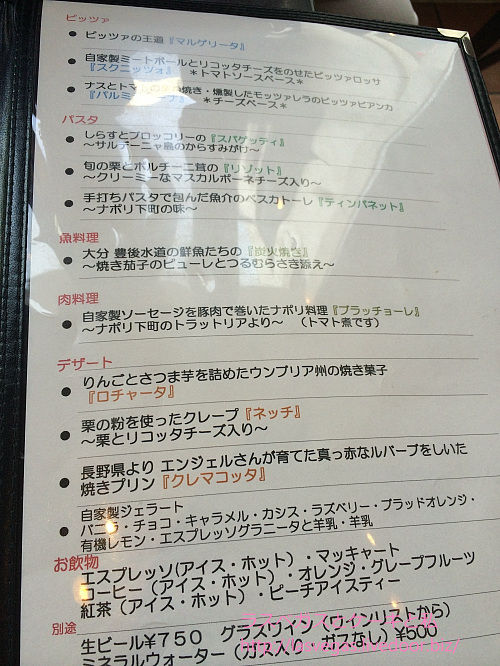 ピッツァ
● ピッツァの王道『マルゲリータ』
● 自家製ミートボールとリコッタチーズをのせたピッツァロッサ
『スクニッツォ』 ＊トマトソースベース＊
● ナスとトマトの 焼き・燻製したモッツァレラのピッツァビアンカ
＊チーズベース＊
パスタ
● しらすとブロッコリーの『スパゲッティ』
～サルデーニャ島のからすみがけ～
● 旬の栗とポルチーニ茸の『リゾット』
～クリーミーなマスカルポーネチーズ入り～
● 手打ちパスタで包んだ魚介のペスカトーレ『ティンパネット』
～ナポリ下町の味～
魚料理
● 大分 豊後水道の鮮魚たちの『炭火焼き』
～焼き茄子のピューレとつるむらさき添え～
肉料理
● 自家製ソーセージを豚肉で巻いたナポリ料理『ブラッチョーレ』
～ナポリ下町のトラットリアより～ （トマト煮です）
デザート
● りんごとさつま芋を詰めたウンブリア州の焼き菓子
『ロチャータ』
● 栗の粉を使ったクレープ『ネッチ』
～栗とリコッタチーズ入り～
● 長野県より エンジェルさんが育てた真っ赤なルバーブをしいた
焼きプリン『クレマコッタ』
● 自家製ジェラート
バニラ・チョコ・キャラメル・カシス・ラズベリー・ブラッドオレンジ・
有機レモン・エスプレッソグラニータと羊乳・羊乳
お飲物
エスプレッソ(アイス・ホット）・マッキャート
コーヒー（アイス・ホット）・オレンジ・グレープフルーツ
紅茶（アイス・ホット）・ピーチアイスティー
別途
生ビール¥７５０ グラスワイン（ワインリストから）
ミネラルウォーター（ガス入り・ガスなし）¥500